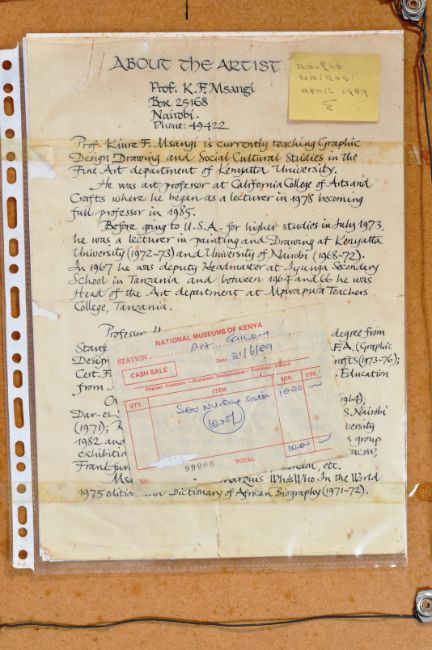 ABOUT THE ARTIST
Prof. K. F. Msangi
Box 25168
Nairobi.
Phone: 49422
BOUGHT
NAIROBI
APRIL 1989
Prof. Kiure F. Msangi is currently teaching Graphic
Design, Drawing and Social Cultural Studies in the
Fine Art department of Kenyatta University.
He was art professor at California College of Arts and
Crafts where he began as a lecturer in 1978 becoming
full professor in 1985.
Before going to U.S.A. for higher studies in July 1973,
he was a lecturer in painting and Drawing at Kenyatta
University (1972-73) and University of Nairobi (1968-72).
In 1967 he was deputy Headmaster at Iyunga Secondary
School in Tanzania and between 1964 and 66 he was
Head of the Art department at Mpwapwa Teachers
College, Tanzania.
Professor degree from
F.A. (Graphic
Design rafts (1973-76);
Cert. F. Education
from
1964);
Dar-es- Nairobi
(1971); versity
1982 and s group
exhibition
Frankfurt etc.
Who's Who In the World
1975 edition Dictionary of African Biography (1971-72).
NATIONAL MUSEUMS OF KENYA
STATION Art
CASH SALE
Date 21/6/89
QTY. ITEM SHS. CTS.
1000
1000/
1000
TOTAL
No. 99006